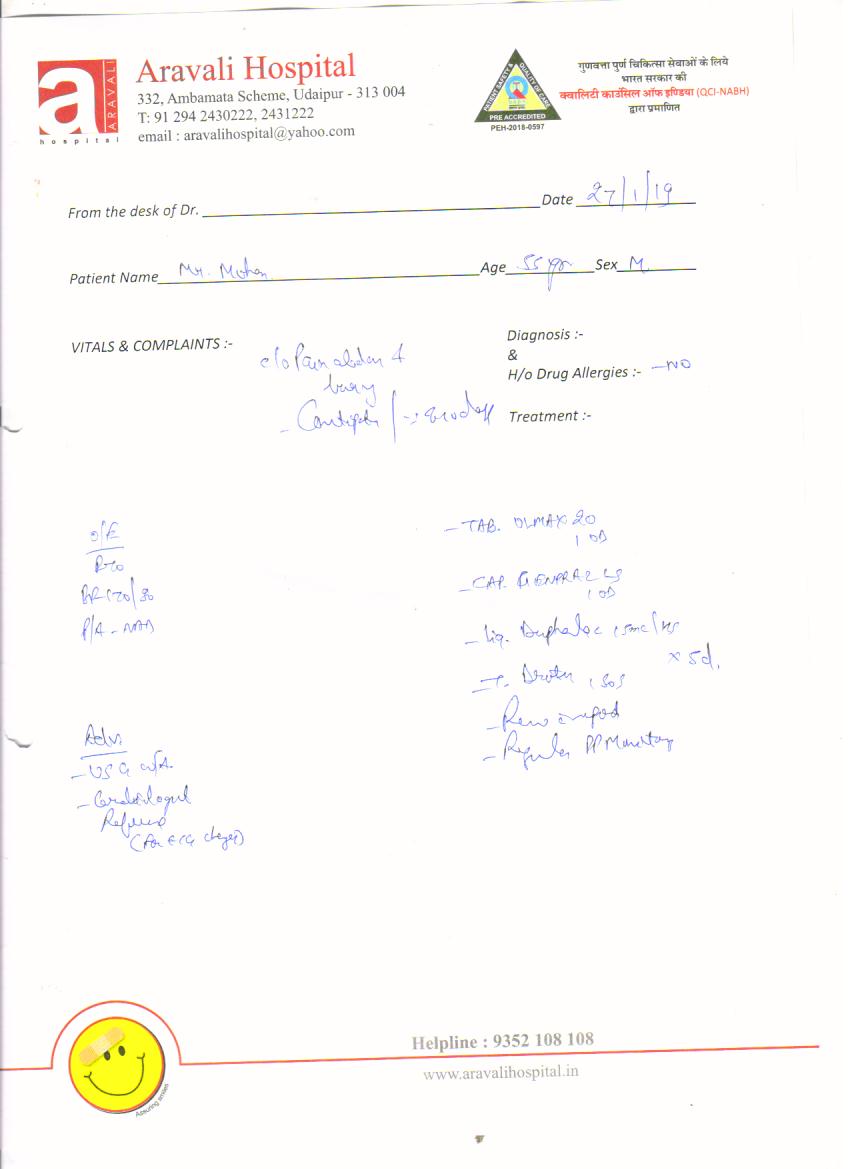 ARAVALI
hospital
Aravali Hospital
332, Ambamata Scheme, Udaipur - 313 004
T: 91 294 2430222, 2431222
email : aravalihospital@yahoo.com
PATIENT SAFETY & QUALITY OF CARE
PRE ACCREDITED
PEH-2018-0597
गुणवत्ता पुर्ण चिकित्सा सेवाओं के लिये
भारत सरकार की
क्वालिटी काउंसिल ऑफ इण्डिया (QCI-NABH)
द्वारा प्रमाणित
From the desk of Dr. Date 27/1/19
Patient Name Mr. Mohan Age 55 yr Sex M
VITALS & COMPLAINTS :-
c/o Pain abdn
Diagnosis :-
&
H/o Drug Allergies :- - NO
Treatment :-
O/E
BP 170/90
P/A - NAD
Adv.
- USG W/A
- Cardiologist
Reference
(For ECG changes)
- TAB. OLMAX 20
1 OD
- CAP.
1 OD
- Liq. Duphalac 15ml/HS
x 5d.
- T. 1 SOS
-
- Regular BP Monitoring
Helpline : 9352 108 108
www.aravalihospital.in
Assuring smiles